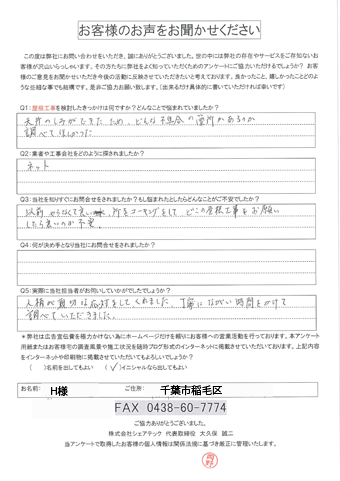 お客様のお声をお聞かせください
この度は弊社にお問い合わせをいただき、誠にありがとうございました。世の中には弊社の存在やサービスをご存知ないお
客様が沢山いらっしゃいます。その方たちに弊社をよく知っていただくためのアンケートにご協力いただけるでしょうか？ お客
様のご意見をお聞かせいただき今後の活動に反映させていただきたいと考えております。良かったこと、嬉しかったことどのよ
うな些細な事でも結構です。是非ご協力お願い致します。（出来るだけ具体的に書いていただければ幸いです）
Q1：屋根工事を検討したきっかけは何ですか？どんなことで悩まれていましたか？
天井のしみがでてきたため、どんな不具合の箇所があるのか
調べてほしかった
Q2：業者や工事会社をどのように探されましたか？
ネット
Q3：当社を知りすぐにお問合せをされましたか？もし悩まれたとしたらどんなことがご不安でしたか？
以前 やらなくて良い 所をコーキングをして どこの屋根工事をお願い
したら良いのか不安
Q4：何が決め手となり当社にお問合せをされましたか？
Q5：実際に当社担当者がお伺いしていかがでしたでしょうか？
人柄が 親切な応対をしてくれました。丁寧にながい時間をかけて
調べていただきました。
＊弊社は広告宣伝費を極力かけない為にホームページだけを頼りにお客様への営業活動を行っております。本アンケート
用紙またはお客様宅の調査風景や施工状況を随時ブログ形式のインターネットに掲載させていただいております。上記内容
をインターネットや印刷物に掲載させていただいてもよろしいでしょうか？
（ ）名前を出してもよい （✓）イニシャルなら出してもよい
お名前： H様 ご住所： 千葉市稲毛区
FAX 0438-60-7774
ご協力ありがとうございました。
株式会社シェアテック 代表取締役 大久保 誠二
当アンケートで取得したお客様の個人情報は関係法規に基づき厳正に管理いたします。